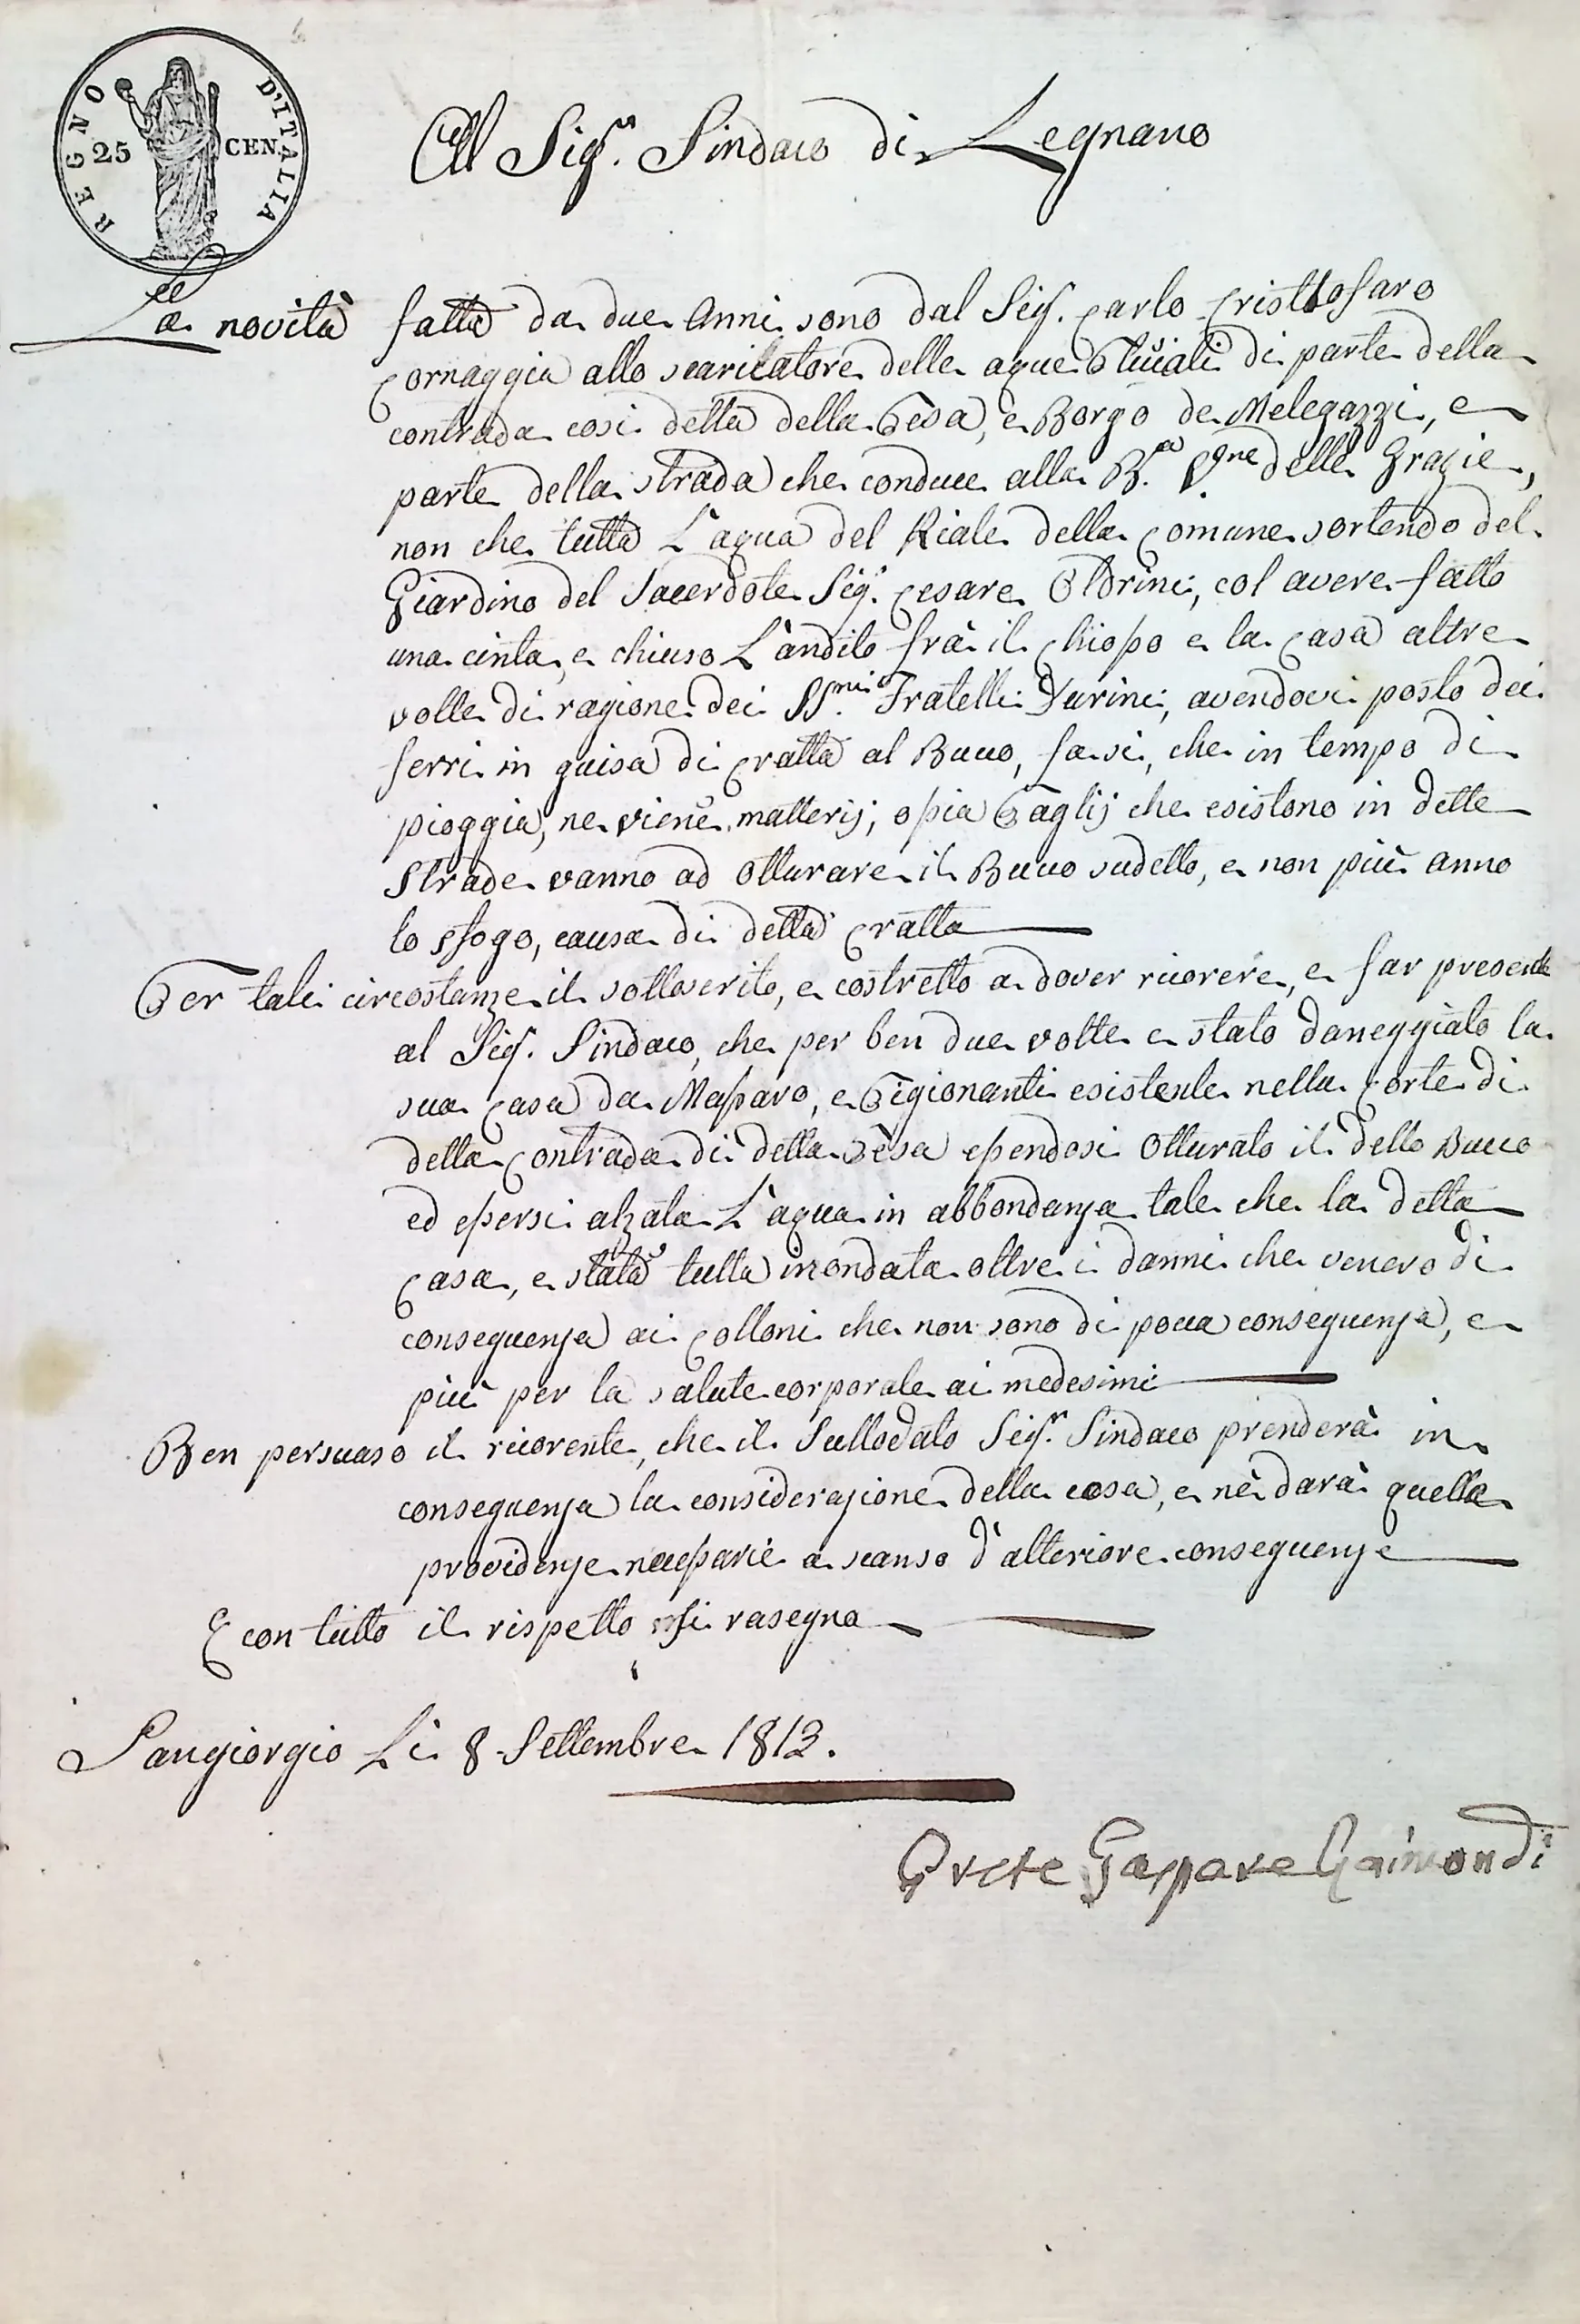 REGNO D'ITALIA
25 CEN.
Al Sig.r Sindaco di Legnano
La novità fatta da due Anni sono dal Sig.r Carlo Cristtofaro
Cornaggia allo scaricatore delle aque Pluviali di parte della
contrada così detta della Pesa, e Borgo de Melegazzi, e
parte della strada che conduce alla B.a V.gne delle Grazie,
non che tutta L'aqua del Riale della Comune sortendo del
Giardino del Sacerdote Sig.r Cesare Oldrini, col avere fatto
una cinta, e chiuso L'andito frà il Chiosso e la Casa altre
volte di ragione dei SS.ri Fratelli Turini, avendovi posto dei
ferri in guisa di Cratta al Buco, fa si, che in tempo di
pioggia, ne viene matterij, ossia Paglij che esistono in dette
Strade vanno ad otturare il Buco sudetto, e non più anno
lo sfogo, causa di detta Cratta
Per tali circostanze il sottoscrito, e costretto a dover ricorere, e far presente
al Sig.r Sindaco, che per ben due volte e stato daneggiato la
sua Casa da Massaro, e Pigionanti esistente nella Corte di
detta Contrada di detta Pèsa essendosi otturato il detto Bucco
ed essersi alzata L'aqua in abbondanza tale che la detta
Casa, e stata tutta inondata oltre i danni che venero di
conseguenza ai Colloni che non sono di poca conseguenza, e
più per la salute corporale ai medesimi
Ben persuaso il ricorente, che il Sullodato Sig.r Sindaco prenderà in
conseguenza la considerazione della cosa, e nè darà quelle
providenze necessarie a scanso d'alteriore conseguenze
E con tutto il rispetto si rasegna
Sangiorgio Li 8 Settembre 1813.
Prete Gaspare Raimondi